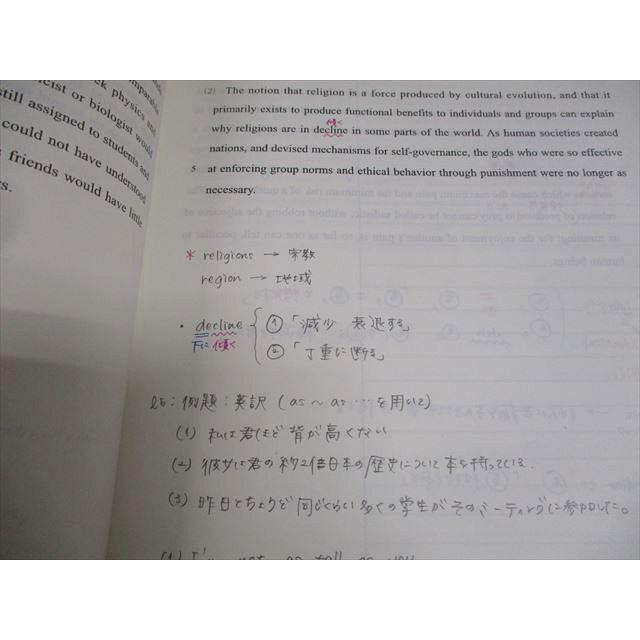 comparable
physics and
icist or biologist would
still assigned to students and
could not have understood
s friends would have little
rs.
(2) The notion that religion is a force produced by cultural evolution, and that it
primarily exists to produce functional benefits to individuals and groups can explain
傾く
why religions are in decline in some parts of the world. As human societies created
nations, and devised mechanisms for self-governance, the gods who were so effective
5 at enforcing group norms and ethical behavior through punishment were no longer as
necessary.
* religions → 宗教
region → 地域
・decline
下に 傾く
①「減少 衰退する」
②「丁重に断る」
例題:英訳 (as ~ as …を用いて)
(1) 私は君ほど背が高くない
(2) 彼女は君の約2倍日本の歴史について本を持っている.
(3) 昨日とちょうど同じくらい多くの学生がそのパーティングに参加した。
(1) I'm not as tall as you